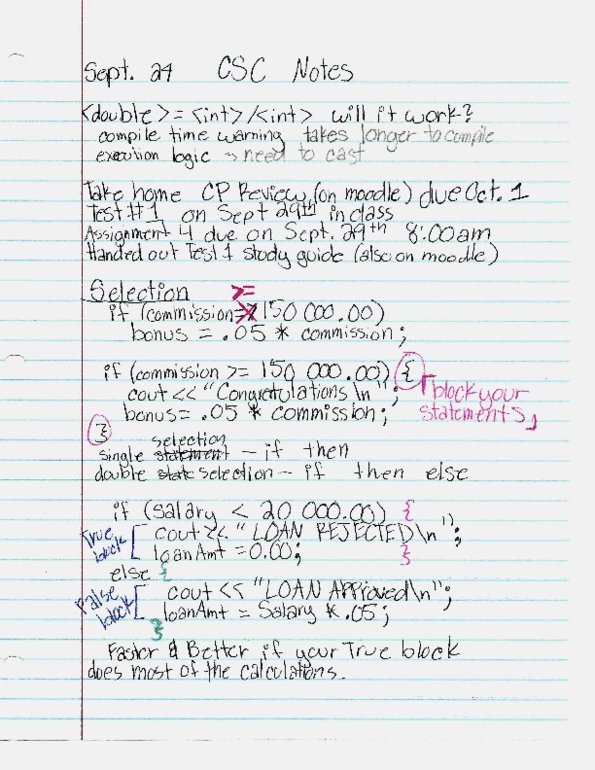 Sept. 24 CSC Notes
<double> = <int>/<int> will it work?
compile time warning takes longer to compile
execution logic → need to cast
Take home CP Review (on moodle) due Oct. 1
Test #1 on Sept 29th in class
Assignment 4 due on Sept. 29th 8:00am
Handed out Test 1 study guide (also on moodle)
Selection
>=
if (commission= 150 000.00)
bonus = .05 * commission;
if (commission >= 150 000.00) {
cout << "Congratulations \n";
block your
statements
bonus = .05 * commission;
}
selection
single statement - if then
double state selection - if then else
if (salary < 20 000.00) {
True
block
cout << "LOAN REJECTED\n";
loanAmt = 0.00;
}
else {
False
block
cout << "LOAN APProved\n";
loanAmt = Salary * .05;
}
Faster & Better if your True block
does most of the calculations.